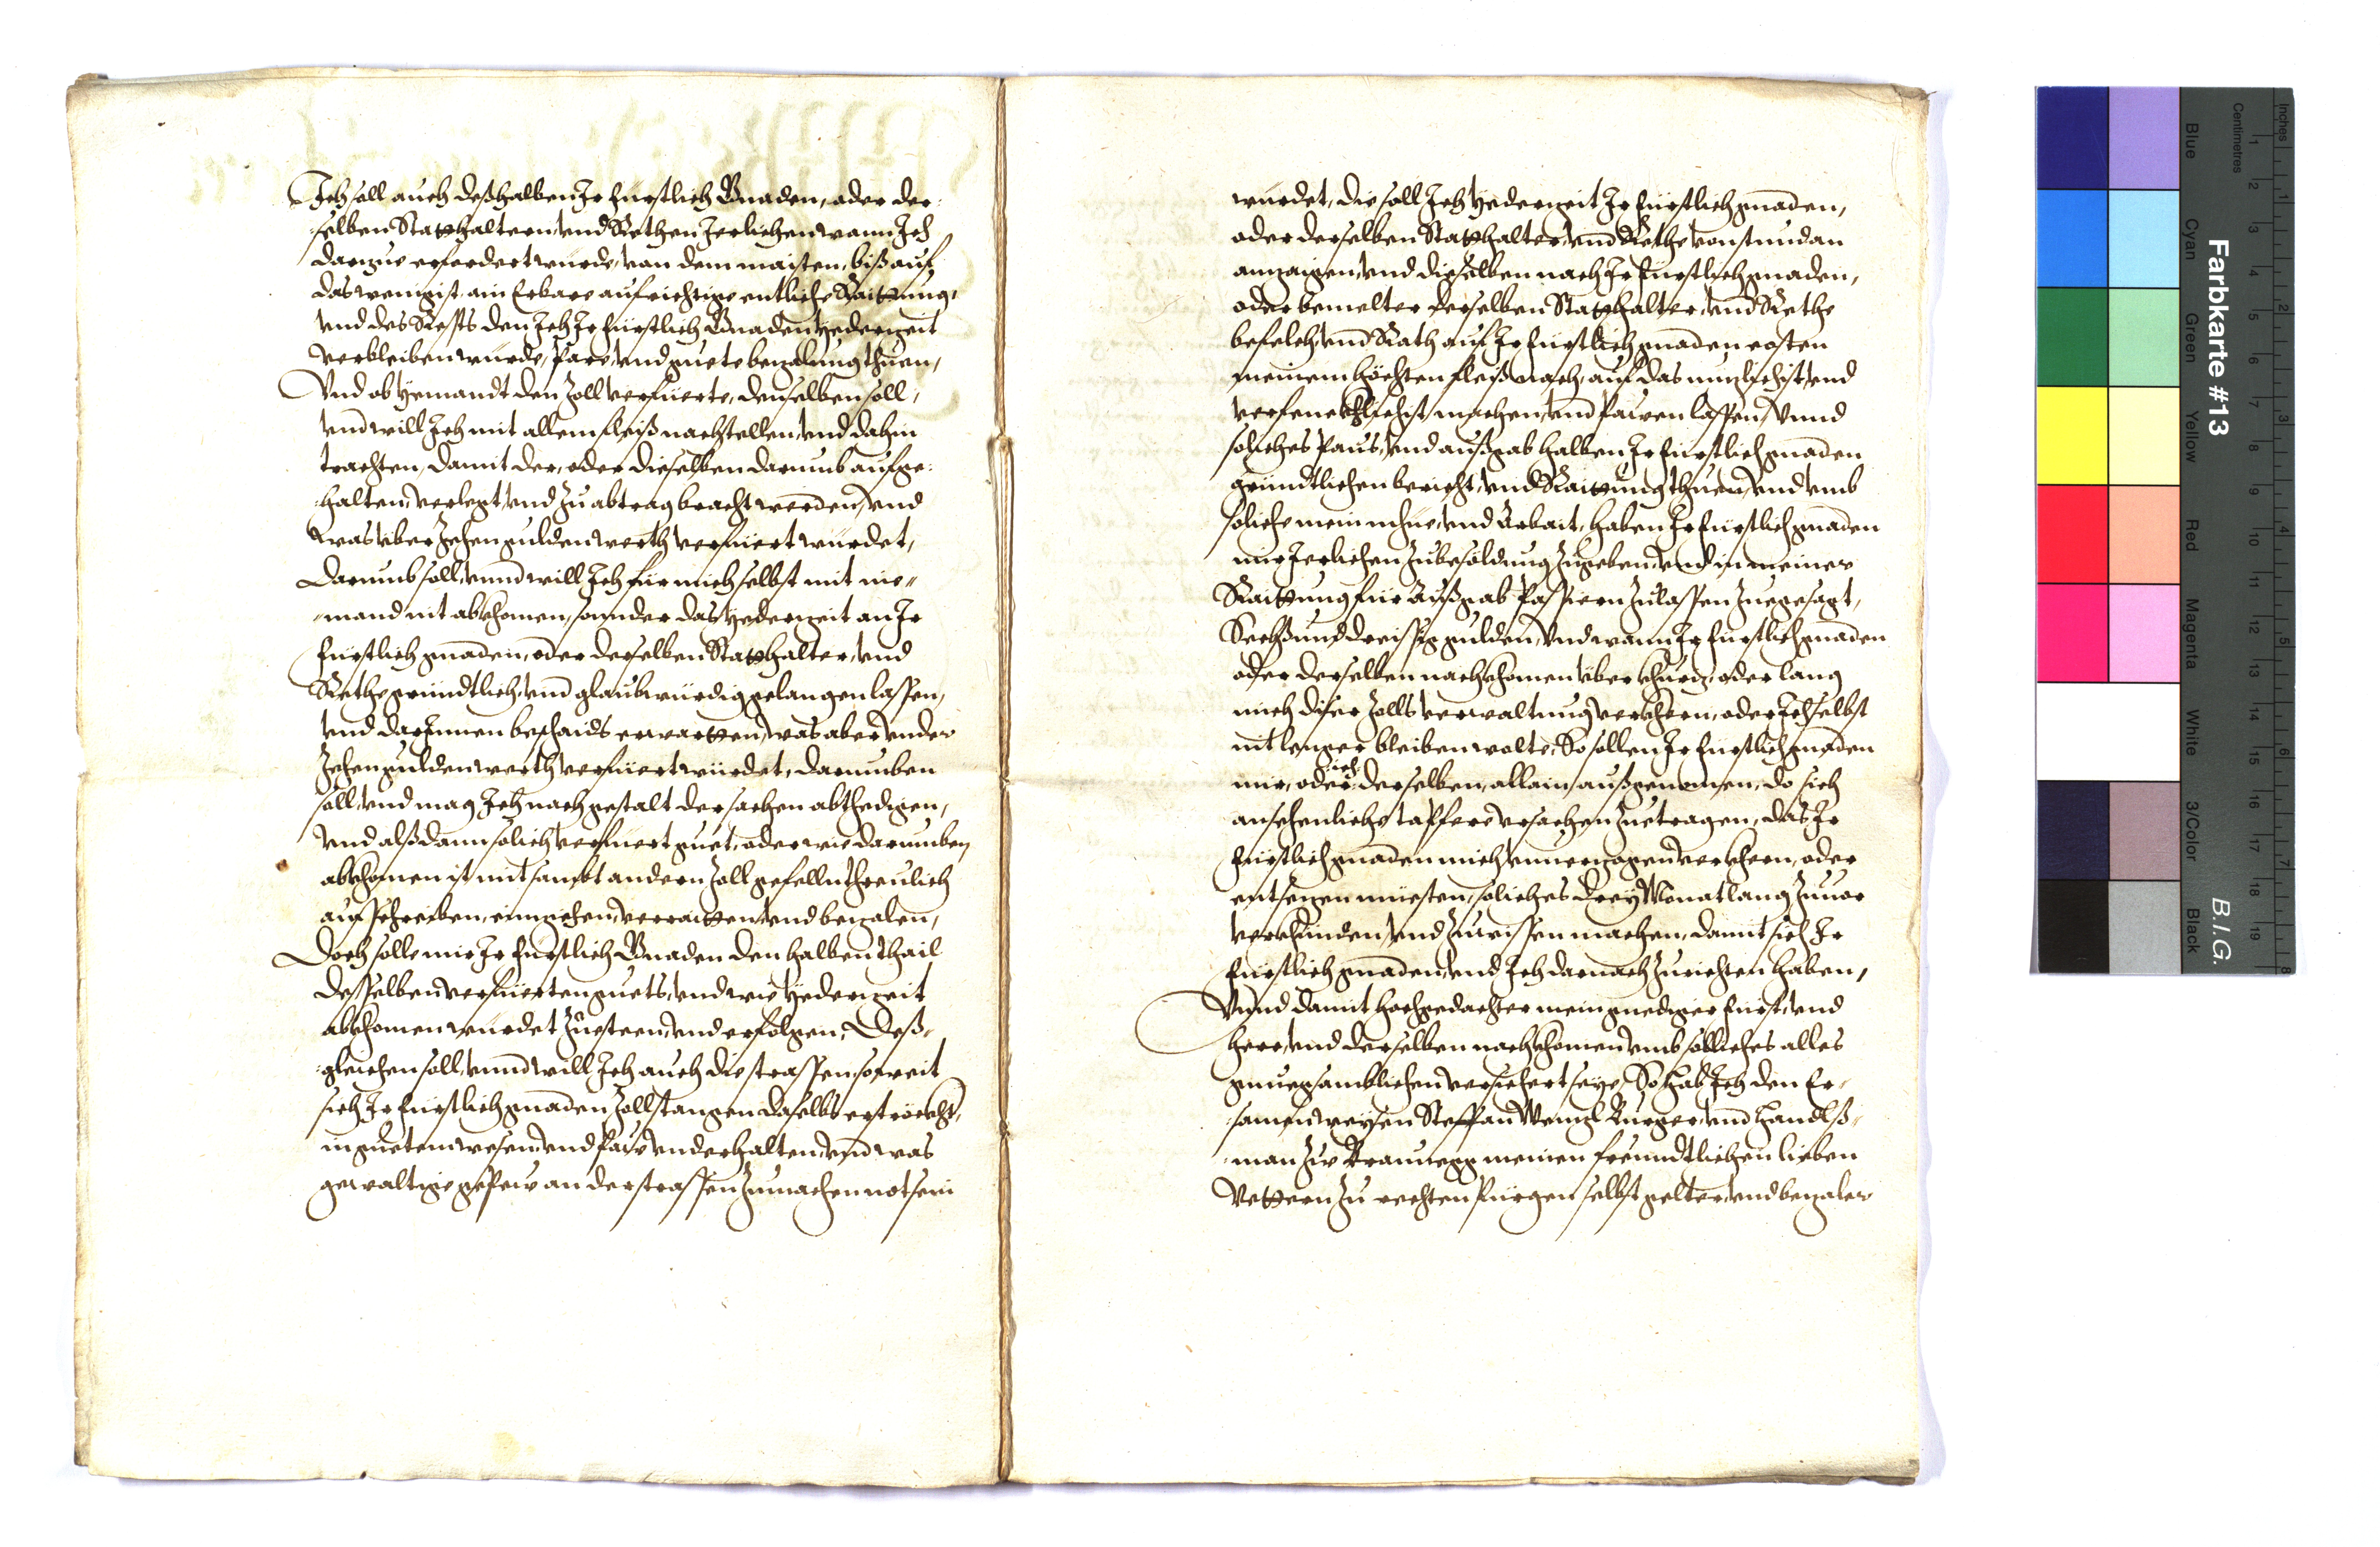 Ich soll auch deßhalben Ir Fürstlich Gnaden, oder der-
selben Statthaltern, vnd Rethen Jerlichen wann Ich
darzue erfordert wurde, von dem maisten, biß auf
das wenigist, ain Erbare aufrichtige entliche Raittung,
vnd des Rests den Ich Ir Fürstlich Gnaden yederzeit
verbleiben wurde, Pare, vnd guete bezalung thuen,
Vnd ob yemandt den Zoll verfuerte, denselben soll,
vnd will Ich mit allem fleiß nachstellen, vnd dahin
trachten, damit der, oder dieselben darumb aufge-
halten, verlegt, vnd zu abtrag bracht werden, vnd
was vber Zehen gulden werth verfüert wurdet,
Darumb soll, vnnd will Ich für mich selbst mit nie-
mand nit abkhomen, sonnder das yederzeit an Ir
Fürstlich gnaden, oder derselben Statthalter, vnd
Rethe gründtlich, vnd glaubwürdig gelangen lassen,
vnd darInnen beschaids erwartten, was aber vnder
Zehen gulden werth verfüert würdet, darumben
soll, vnd mag Ich nach gestalt der sachen abthedigen,
vnd alßdann solich verfuert guet, oder wie darumben
abkhomen ist mit sambt andern Zoll gefelln threulich
aufschreiben, einziehen, verraitten, vnd bezalen,
Doch solle mir Ir Fürstlich Gnaden den halben thail
desselben verfüerten guets, vnd wie yederzeit
abkhomen wurdet Zuesteen, vnd erfolgen, Deß-
gleichen soll, vnnd will Ich auch die strassen, so weit
sich Ir Fürstlich gnaden Zollstangen daselbs erströckht,
in guetem wesen, vnd Paw vnderhalten, vnd was
gewaltige gepew an der strassen Zumachen not sein
wurdet, die soll Ich yederzeit Ir Fürstlich gnaden,
oder derselben Statthalter, vnd Rethe von stund an
anzaigen, vnd dieselben nach Ir Fürstlich gnaden,
oder bemelter derselben Statthalter, vnd Rethe
befelch, vnd Rath auf Ir Fürstlich gnaden costen
meinem höchsten fleiß nach, auf das nuzlichist, vnd
machen, vnd pawen lassen, Vnnd
soliches Paws, vnd außgab halben Ir Fürstlich gnaden
gründtlichen bericht, vnd Raittung thuen, vnd vmb
soliche mein mhüe, vnd Arbait, haben Ir Fürstlich gnaden
mir Jerlichen Zubesoldung Zugeben, vnd in meiner
Raittung für Außgab Passieren Zulassen Zuegesagt,
Sechßunddreissig gulden, Vnd wann Ir Fürstlich gnaden
oder derselben nachkhomen vber khurz, oder lang
mich diser Zolls verwaltung verkhern, oder Ich selbst
nit lenger bleiben wolte, So sollen Ir Fürstlich gnaden
ich
mir, oder derselben, allain außgenomen, do sich
ansehenliche taffere vrsachen Zuetragen, das Ir
Fürstlich gnaden mich vnuerzogen verkhern, oder
entsezen müesten, soliches drey Monat lang Zuuor
verkhünden, vnd Zuwissen machen, damit sich Ir
Fürstlich gnaden, vnd Ich darnach Zurichten haben,
Vnnd damit hochgedachter mein gnediger Fürst, vnd
Herr, vnd derselben nachkhomen vmb solliches alles
gnuegsamblichen versichert seye, So hab Ich den Er-
samen weysen Steffan Wenzl Burger, vnd Handlß-
man Zu Braunegg meinen freundtlichen lieben
Vettern Zu rechten Fürgen selbst gelter, vnd bezaler